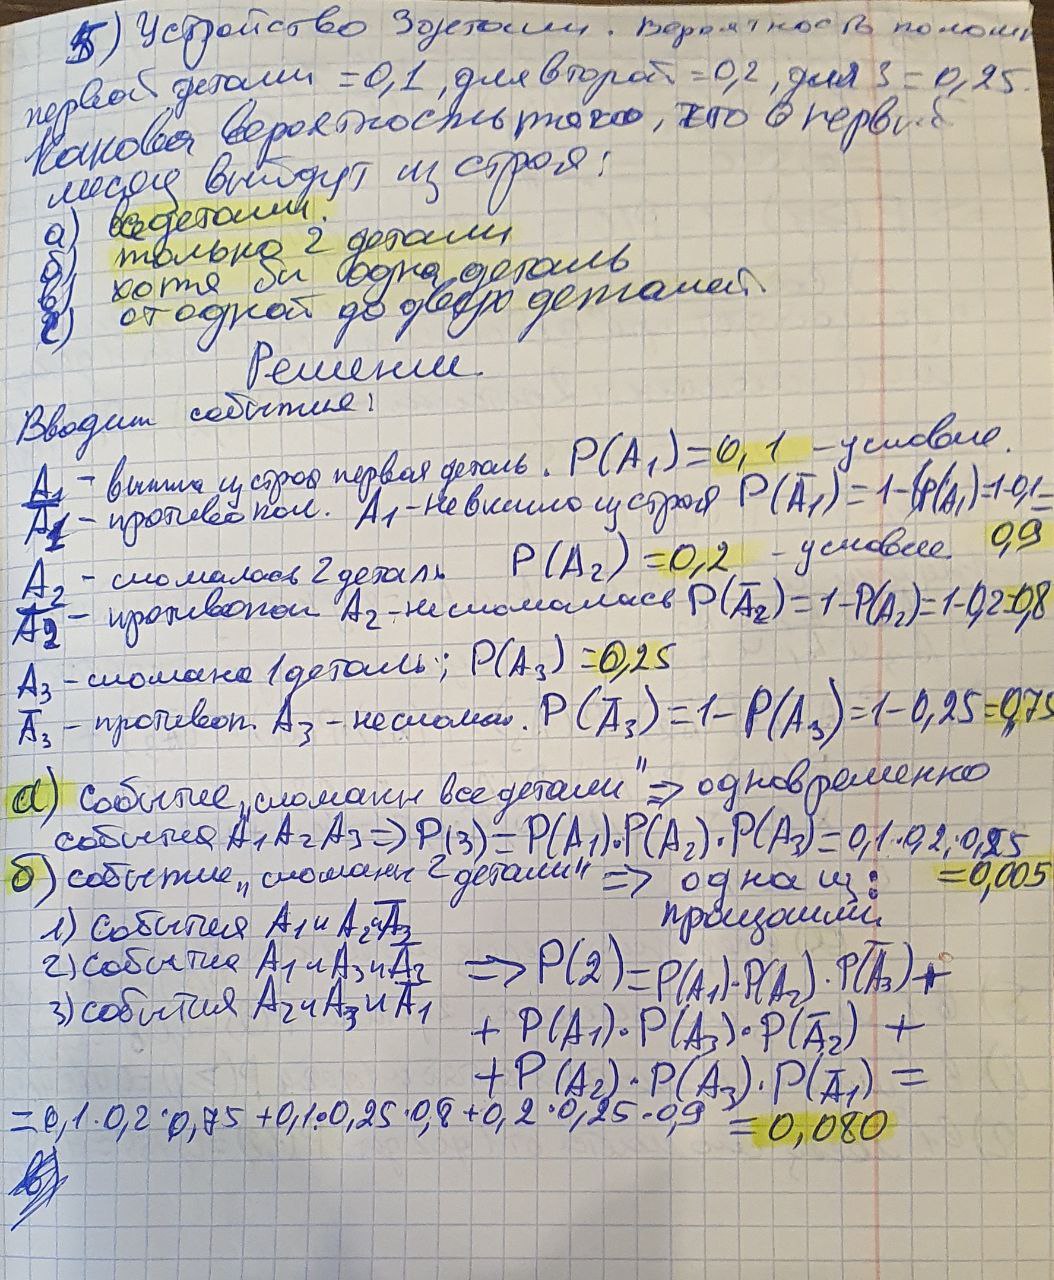 5) Устройство 3 детали. Вероятность поломки
первой детали = 0,1, для второй = 0,2, для 3 = 0,25.
Какова вероятность того, что в первый
месяц выйдут из строя:
а) все детали.
б) только 2 детали
в) хотя бы одна деталь
г) от одной до двух деталей
Решении.
Вводим события:
A₁ - вышла из строя первая деталь. P(A₁) = 0,1 - условие.
A̅₁ - противопол. A₁ - не вышло из строя P(A̅₁) = 1 - P(A₁) = 1 - 0,1 =
0,9
A₂ - сломалась 2 деталь P(A₂) = 0,2 - условие
A̅₂ - противопол A₂ - не сломалась P(A̅₂) = 1 - P(A₂) = 1 - 0,2 = 0,8
A₃ - сломана 1 деталь; P(A₃) = 0,25
A̅₃ - противоп. A₃ - не слома. P(A̅₃) = 1 - P(A₃) = 1 - 0,25 = 0,75
а) Событие „сломаны все детали" => одновременно
события A₁ A₂ A₃ => P(3) = P(A₁)·P(A₂)·P(A₃) = 0,1·0,2·0,25
= 0,005
б) событие „сломаны 2 детали" => одна из:
прощоими
1) События A₁ и A₂ и A̅₃
2) события A₁ и A₃ и A̅₂ => P(2) = P(A₁)·P(A₂)·P(A̅₃) +
3) события A₂ и A₃ и A̅₁
+ P(A₁)·P(A₃)·P(A̅₂) +
+ P(A₂)·P(A₃)·P(A̅₁) =
= 0,1·0,2·0,75 + 0,1·0,25·0,8 + 0,2·0,25·0,9 = 0,080